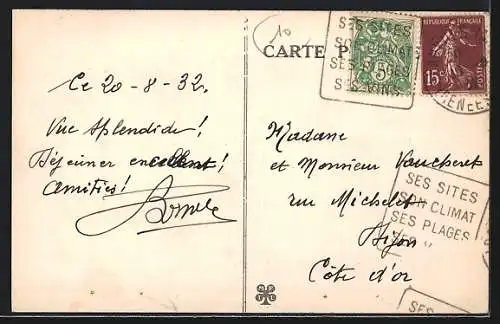 10
CARTE P
SES SITES
SON CLIMAT
SES PLAGES
SES VINS
5
RÉPUBLIQUE FRANÇAISE
15c
POSTES
Ce 20-8-32.
Vue splendide!
Déjeuner excellent!
Amitiés!
Madame
et Monsieur Vaucheret
rue Michelet
Dijon
Côte d'or
SES SITES
SON CLIMAT
SES PLAGES
SES
SES